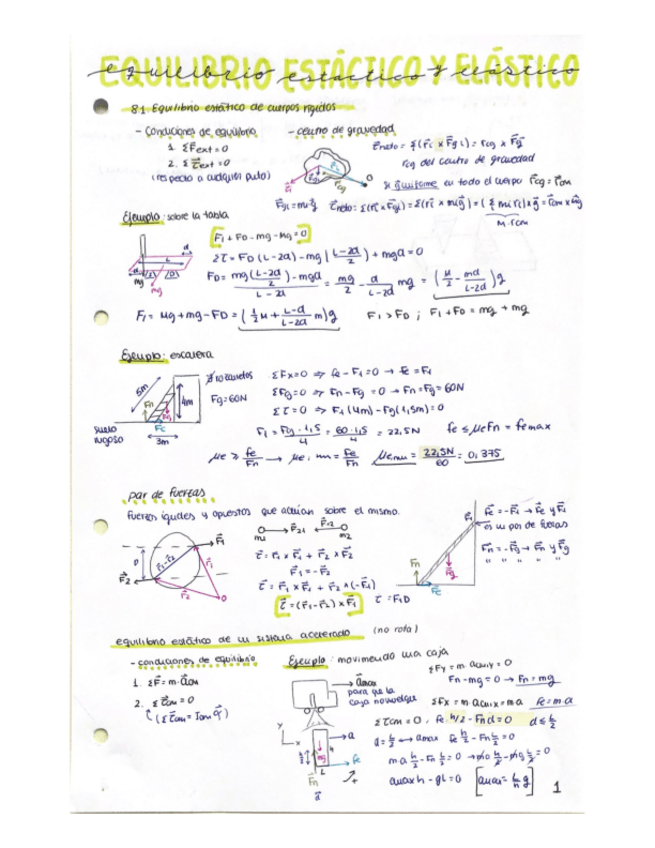 EQUILIBRIO ESTÁCTICO Y ELÁSTICO
8.1. Equilibrio estático de cuerpos rígidos
- Condiciones de equilibrio
1. ΣF⃗ext = 0
2. Στ⃗ext = 0
(respecto a cualquier punto)
- centro de gravedad
rcg del centro de gravedad
si g uniforme en todo el cuerpo r⃗cg = r⃗cm
M·rcm
Ejemplo: sobre la tabla
F1 + FD - mg - Mg = 0
Στ = FD (L-2d) - Mg (L-2d/2) + mgd = 0
F1 > FD ; F1 + FD = Mg + mg
Ejemplo: escalera
5m
4m
3m
Fn
Fg
suelo
rugoso
Fg = 60N
ΣFx=0 ⇒ fe - F1 = 0 → fe = F1
ΣFy=0 ⇒ Fn - Fg = 0 → Fn = Fg = 60N
Στ=0 ⇒ F1 (4m) - Fg (1,5m) = 0
F1 = Fg · 1,5 / 4 = 60 · 1,5 / 4 = 22,5N
fe ≤ μeFn = femax
μe ≥ fe/Fn → μe, min = fe/Fn
μe min = 22,5N/60 = 0,375
par de fuerzas
fuerzas iguales y opuestas que actúan sobre el mismo.
m1
F⃗21
F⃗12
m2
τ⃗ = r⃗1 x F⃗1 + r⃗2 x F⃗2
F⃗1 = -F⃗2
τ⃗ = r⃗1 x F⃗1 + r⃗2 x (-F⃗1)
τ⃗ = (r⃗1 - r⃗2) x F⃗1
τ = F1D
F⃗e = -F⃗1 → F⃗e y F⃗1
es un par de fuerzas
F⃗n = -F⃗g → F⃗n y F⃗g
" " " "
equilibrio estático de un sistema acelerado (no rota)
- condiciones de equilibrio
1. ΣF⃗ = m·a⃗cm
2. Στ⃗cm = 0
(Στ⃗cm = Icm α⃗)
Ejemplo: movimendo una caja
a⃗max
para que la
caja no vuelque
ΣFy = m·acm,y = 0
Fn - mg = 0 → Fn = mg
ΣFx = m·acm,x = ma
fe = ma
Στcm = 0, fe h/2 - Fnd = 0
d ≤ L/2
d = L/2 ↔ amax
fe h/2 - Fn L/2 = 0
ma h/2 - Fn L/2 = 0
amax h - gL = 0
amax = L/h g
1